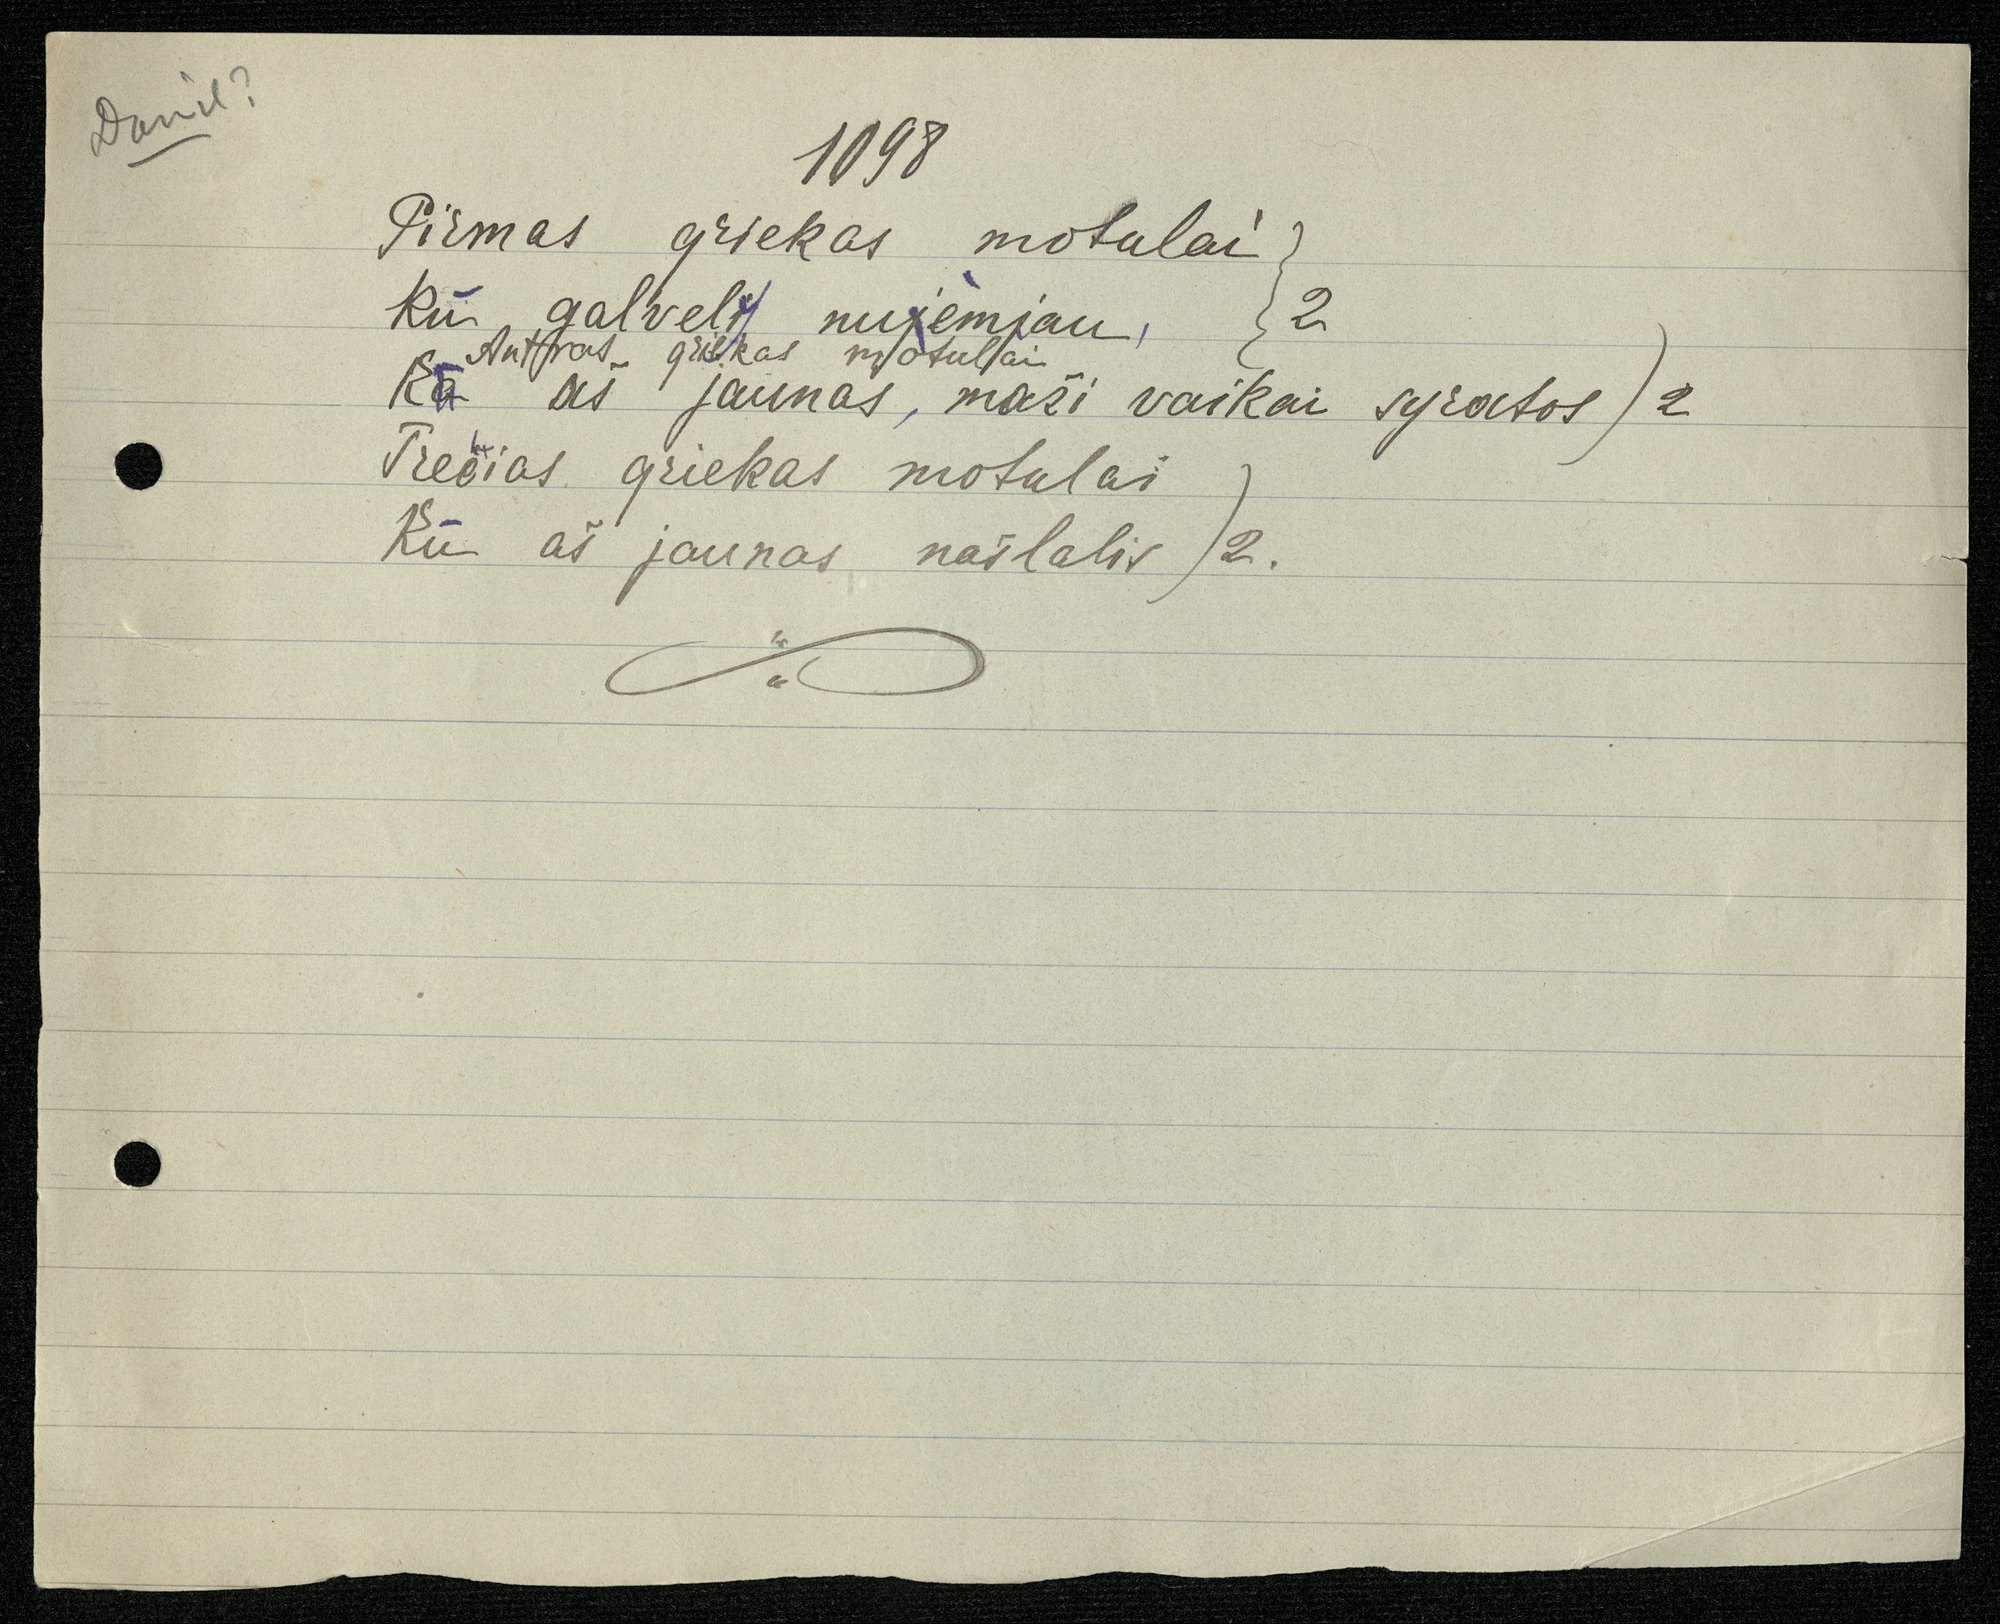 Danil?
1098
Pirmas griekas motulai } 2
Kū galvelį nujėmjau,
Antras griekas motulai
Kū aš jaunas, maži vaikai syratos ) 2
Trečias griekas motulai
Kū aš jaunas našlalis ) 2.